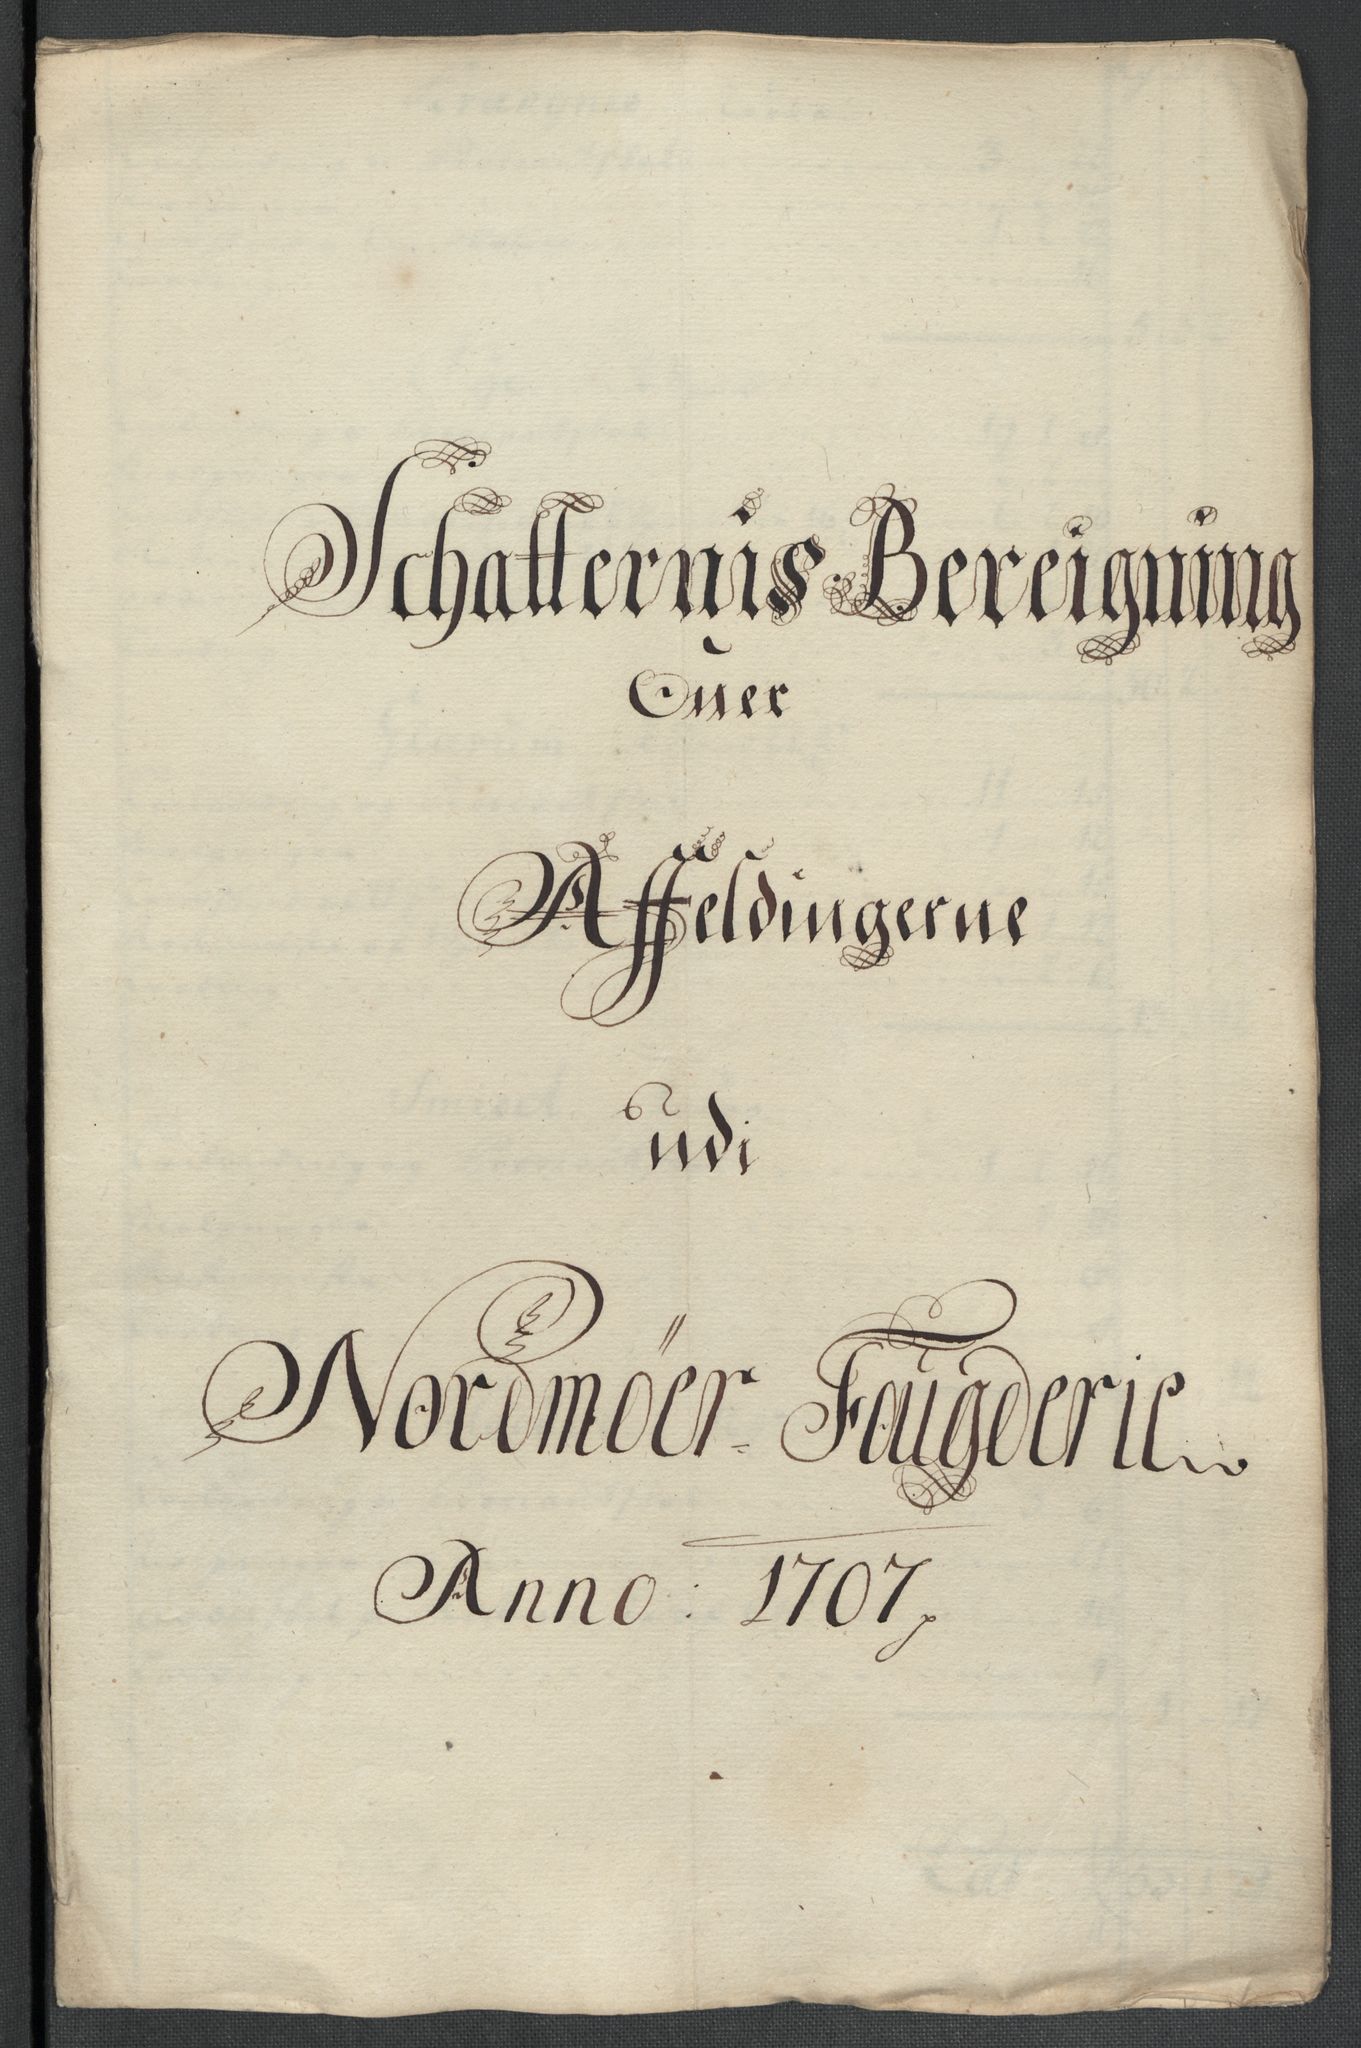 Schatternis Bereigning
Ouer
Affeldingerne
udi
Nordmöer Faugderie
Anno: 1707,